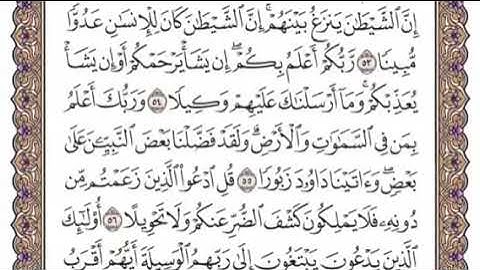 إِنَّ ٱلشَّيْطَٰنَ يَنزَغُ بَيْنَهُمْ ۚ إِنَّ ٱلشَّيْطَٰنَ كَانَ لِلْإِنسَٰنِ عَدُوًّا
مُّبِينًا ٥٣ رَّبُّكُمْ أَعْلَمُ بِكُمْ ۖ إِن يَشَأْ يَرْحَمْكُمْ أَوْ إِن يَشَأْ
يُعَذِّبْكُمْ ۚ وَمَآ أَرْسَلْنَٰكَ عَلَيْهِمْ وَكِيلًا ٥٤ وَرَبُّكَ أَعْلَمُ
بِمَن فِى ٱلسَّمَٰوَٰتِ وَٱلْأَرْضِ ۗ وَلَقَدْ فَضَّلْنَا بَعْضَ ٱلنَّبِيِّـۧنَ عَلَىٰ
بَعْضٍ ۖ وَءَاتَيْنَا دَاوُۥدَ زَبُورًا ٥٥ قُلِ ٱدْعُوا۟ ٱلَّذِينَ زَعَمْتُم مِّن
دُونِهِۦ فَلَا يَمْلِكُونَ كَشْفَ ٱلضُّرِّ عَنكُمْ وَلَا تَحْوِيلًا ٥٦ أُو۟لَٰٓئِكَ
ٱلَّذِينَ يَدْعُونَ يَبْتَغُونَ إِلَىٰ رَبِّهِمُ ٱلْوَسِيلَةَ أَيُّهُمْ أَقْرَبُ